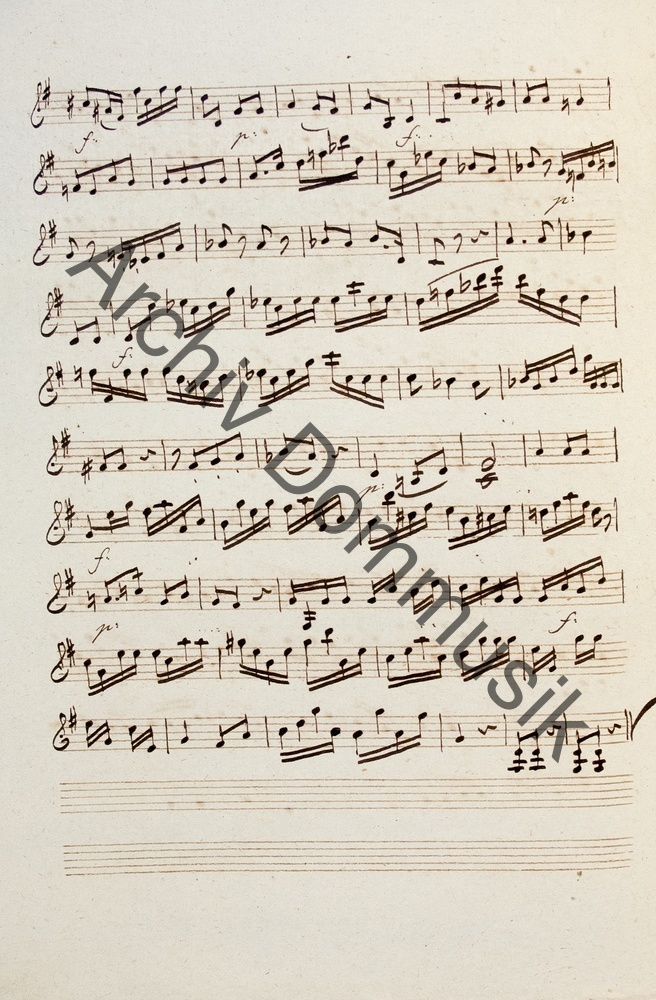 f: p: f:
p:
f:
p:
f:
p: f:
Archiv Dommusik